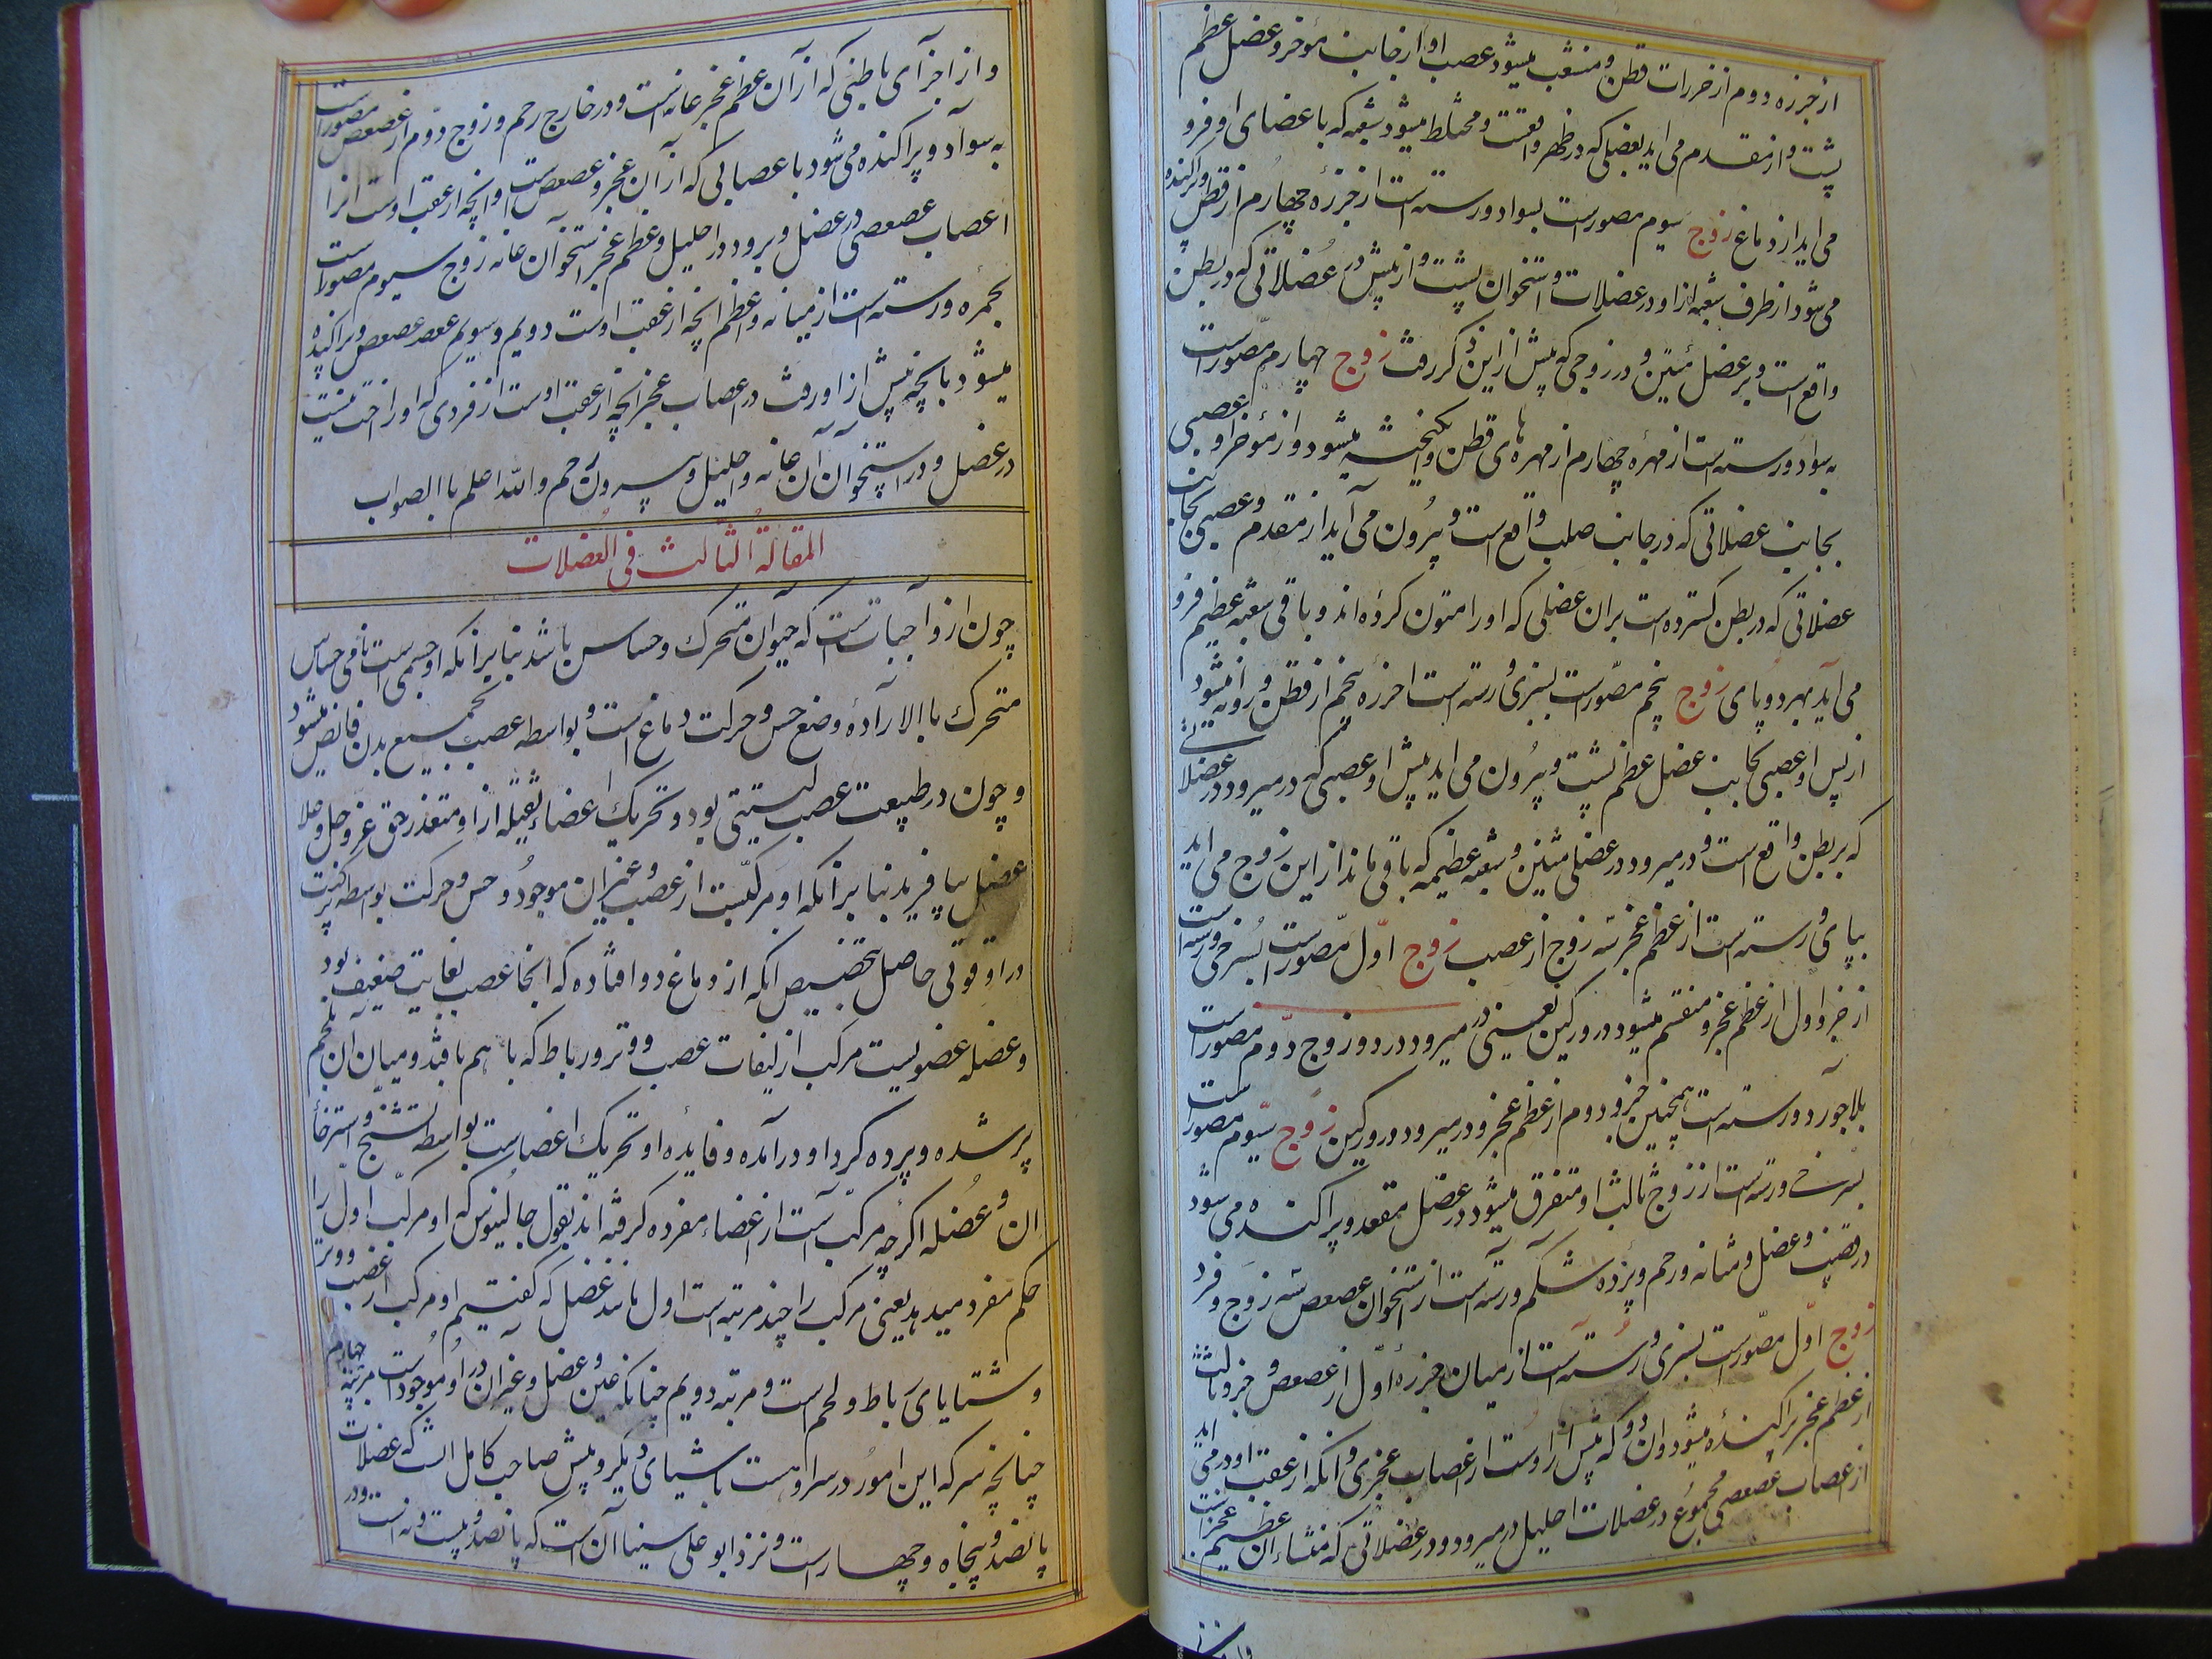 از خرزه دوم از خرزات قطن و منشعب میشود عصب او از جانب موخر و عضل عظم
پشت و از مقدم می اید بعضلی که در ظهر واقعست و مختلط میشود شعبه که باعضای او فرو
می اید از دماغ زوج سیوم مصورست بسواد و رسته است از خرزه چهارم از قطن و پراکنده
می شود از طرف شعبه ازاو در عضلات و استخوان پشت و از پیش در عضلاتی که در بطن
واقع است و بر عضل متین و در زوجی که پیش از این ذکر رفت زوج چهارم مصورست
به سواد و رسته است از مهره چهارم از مهره های قطن و میشود و از مؤخر او عصبی
بجانب عضلاتی که در جانب صلب واقع است و بیرون می آید از مقدم و عصبی بجانب
عضلاتی که در بطن گسترده است بران عضلی که او را متون کرده اند و باقی شعبه عظیم فرو
می آید بهر دو پای زوج پنجم مصورست بسبزی و رسته است از خرزه پنجم از قطن و روانه میشود
از پس او عصبی بجانب عضل عظم پشت و بیرون می اید پیش او عصبی که در میرود در عضلاتی
که بر بطن واقع است و در میرود در عضلی متین و شعبه عظیمه که باقی ماند از این زوج می اید
بپای و رسته است از عظم عجز سه زوج از عصب زوج اول مصورست بسرخی و رسته است
از جزو اول از عظم عجز و منقسم میشود در ورکین یعنی در میرود در دو زوج دوم مصورست
بلاجورد و رسته است همچنین جزو دوم از عظم عجز و در میرود در ورکین زوج سیوم مصورست
بسرخی و رسته است از زوج ثالث او متفرق میشود در عضل مقعد و پراکنده می شود
در قضیب و عضل و مثانه و رحم و پرده شکم و رسته است از استخوان عصعص سه زوج و فرد
زوج اول مصورست بسبزی و رسته است از میان خرزه اول از عصعص و جزو ثالث
از عظم عجز پراکنده میشود وان دو که پیش ازاوست از اعصاب عجزی و انکه از عقب او در می اید
از اعصاب عصعصی مجموع در عضلات احلیل در میرود و در عضلاتی که منشاء ان عظیم عجزاست
و از اجزآی باطنی که از آن عظم عجز عانه است و در خارج رحم و زوج دوم از عصعص مصورست
به سواد و پراکنده می شود با عصبابی که از آن عجز و عصعص است و انچه از عقب اوست انرا
اعصاب عصعصی در عضل و برود در احلیل و عظم عجز استخوان عانه زوج سیوم مصورست
بحمره و رسته است از میانه و اعظم انچه از عقب اوست دویم و سویم عصعص و پراکنده
میشود بانچه پیش ازاو رفت در اعصاب عجز انچه از عقب اوست از فردی که او را اخت نیست
در عضل و در استخوان آن عانه و احلیل و بیرون رحم والله اعلم باالصواب
المقالة الثالث فی العضلات
چون از واجبات است که حیوان متحرک و حساس باشد بنا برانکه او جسمی است نامی حساس
متحرک باالاراده و وضع حس و حرکت دماغ است و بواسطه عصب بجمیع بدن فایض میشود
و چون در طبیعت عصب لینتی بود و تحریک اعضاء ثقیله ازاو متعذر حق عز و جل و علا
عضل بیافرید بنا برانکه او مرکبست از عصب و غیر ان موجود و حس و حرکت بواسطه کثرت
در او قوتی حاصل بتخصیص انکه از دماغ دور افتاده که انجا عصب بغایت ضعیف بود
و عضله عضویست مرکب از لیفات عصب و وتر و رباط که با هم بافته و میان آن بلحم
پر شده و پرده کرد او درآمده و فایده او تحریک اعضاست بواسطه تشنج و استرخاء
ان و عضله اکرچه مرکب است از اعضاء مفرده کرفته اند بقول جالینوس که او مرکب اول را
حکم مفرد میدهد یعنی مرکب را چند مرتبه است اول مانند عضل که گفتیم او مرکب از عصب و وتر
و شظایای رباط و لحم است و مرتبه دویم چنانکه عین و عضل و غیران در او موجودست مرتبه چهارم
چنانچه سر که این امور در سر اوهست باشیای دیکر و پیش صاحب کامل الست که عضلات
پانصد و پنجاه و چهارست و نزد ابو علی سینا آن است که پانصد و بیست و نه است و در